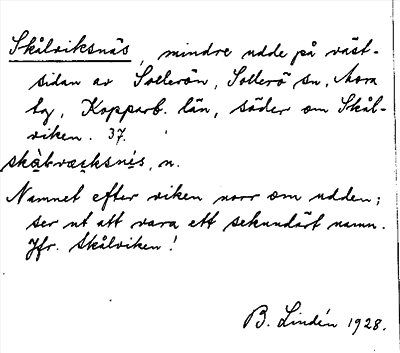 Skålviksnäs, mindre udde på väst-
sidan av Sollerön, Sollerö sn, Mora
tg, Kopparb. län, söder om Skål-
viken. 37.
skàlvæ̣ksnịs, n.
Namnet efter viken norr om udden;
ser ut att vara ett sekundärt namn.
Jfr. Skålviken!
B. Lindén 1928.